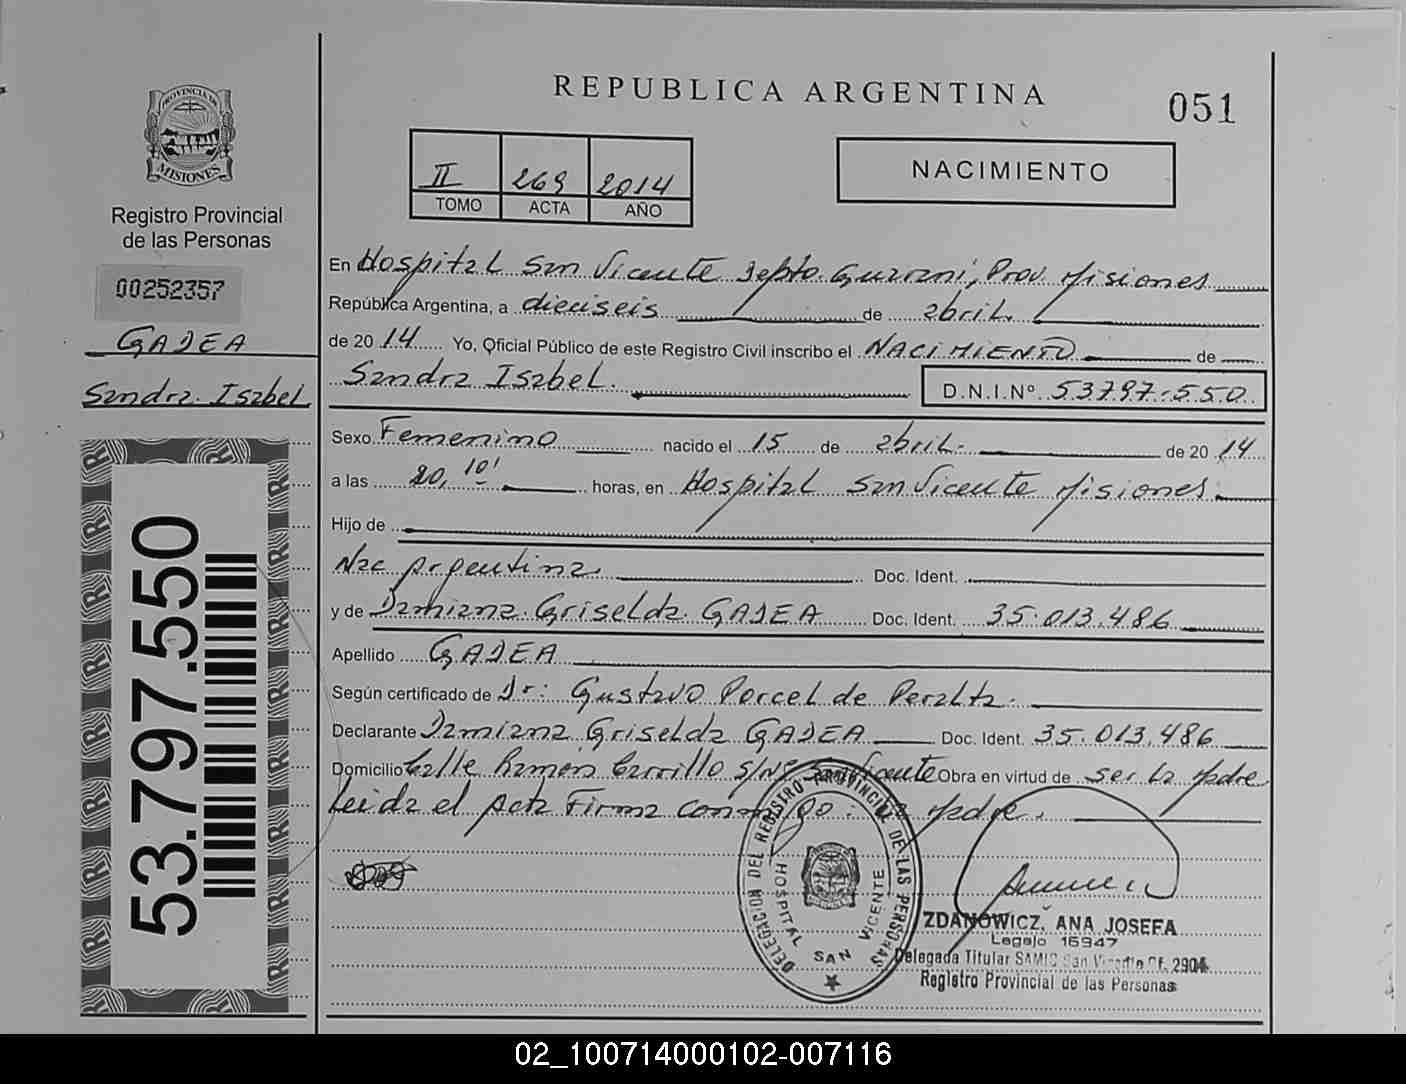 REPUBLICA ARGENTINA
051
PROVINCIA DE
MISIONES
Registro Provincial
de las Personas
00252357
GADEA
Sandra Isabel
53.797.550
II 269 2014
TOMO ACTA AÑO
NACIMIENTO
En Hospital San Vicente Depto. Guarani, Prov. Misiones
República Argentina, a dieciseis de abril.
de 2014 Yo, Oficial Público de este Registro Civil inscribo el NACIMIENTO de
Sandra Isabel. D.N.I.Nº 53797.550
Sexo Femenino nacido el 15 de abril. de 2014
a las 20,10' horas, en Hospital San Vicente Misiones.
Hijo de
Nac Argentina. Doc. Ident.
y de Damiana Griselda GADEA Doc. Ident. 35.013.486
Apellido GADEA
Según certificado de Dr: Gustavo Porcel de Peralta.
Declarante Damiana Griselda GADEA Doc. Ident. 35.013.486
Domicilio Calle Ramón Carrillo s/nº San Vicente Obra en virtud de ser la Madre
Leida el Acta Firma conmigo: La Madre.
DELEGACION DEL REGISTRO PROVINCIAL DE LAS PERSONAS
HOSPITAL SAN VICENTE
ZDANOWICZ, ANA JOSEFA
Legajo 16947
Delegada Titular SAMIC San Vicente Of. 2904
Registro Provincial de las Personas
02_100714000102-007116